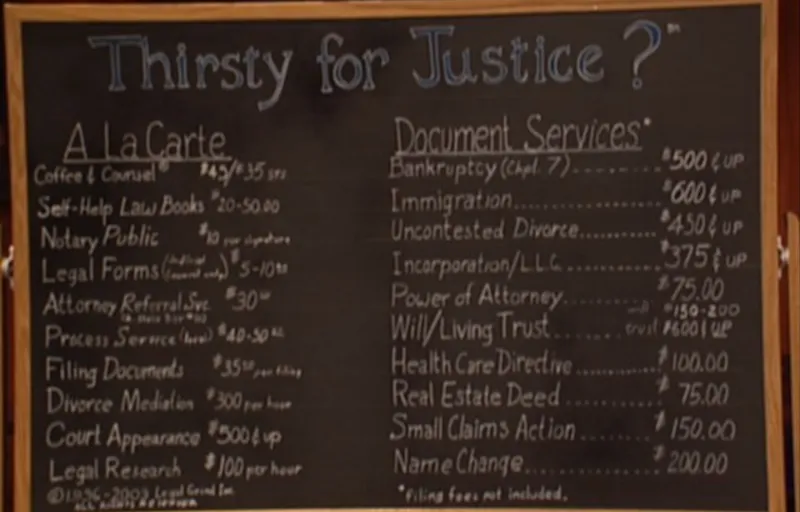 Thirsty for Justice?™
A La Carte
Coffee & Counsel® $45/$35
Self-Help Law Books $20-50.00
Notary Public $10 per signature
Legal Forms $5-10
Attorney Referral Svc. $30
Process Service (local) $40-50
Filing Documents $35 per filing
Divorce Mediation $300 per hour
Court Appearance $500 & up
Legal Research $100 per hour
©1996-2003 Legal Grind Inc.
ALL RIGHTS RESERVED
Document Services*
Bankruptcy (Chpt. 7) $500 & UP
Immigration $600 & UP
Uncontested Divorce $450 & UP
Incorporation/LLC $375 & UP
Power of Attorney $75.00
will $150-200
Will/Living Trust trust $600 & UP
Health Care Directive $100.00
Real Estate Deed $75.00
Small Claims Action $150.00
Name Change $200.00
*filing fees not included.